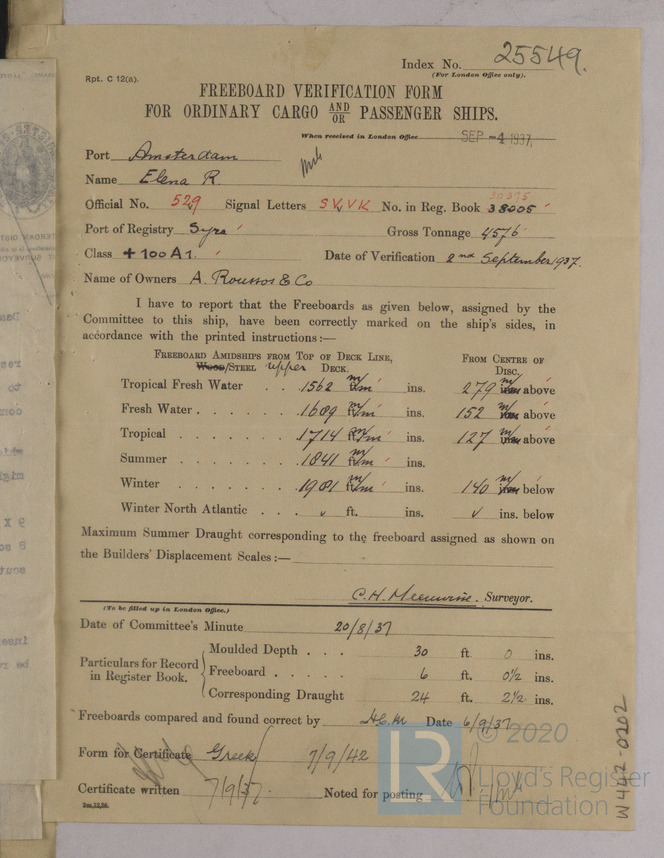 Index No. 25549.
(For London Office only).
Rpt. C 12(a).
FREEBOARD VERIFICATION FORM
FOR ORDINARY CARGO AND/OR PASSENGER SHIPS.
When received in London Office SEP -4 1937
Port Amsterdam
Name Elena R.
Official No. 529 Signal Letters SVVK No. in Reg. Book 30375 38005
Port of Registry Syra Gross Tonnage 4576
Class + 100 A1. Date of Verification 2nd September 1937.
Name of Owners A. Roussos & Co
I have to report that the Freeboards as given below, assigned by the
Committee to this ship, have been correctly marked on the ship's sides, in
accordance with the printed instructions:—
FREEBOARD AMIDSHIPS FROM TOP OF DECK LINE, FROM CENTRE OF
WOOD/STEEL upper DECK. DISC.
Tropical Fresh Water . . 1562 m/m ins. 279 m/m above
Fresh Water . . . . . . 1689 m/m ins. 152 m/m above
Tropical . . . . . . . 1714 m/m ins. 127 m/m above
Summer . . . . . . . 1841 m/m ins.
Winter . . . . . . . 1981 m/m ins. 140 m/m below
Winter North Atlantic . . . ✓ ft. ins. ✓ ins. below
Maximum Summer Draught corresponding to the freeboard assigned as shown on
the Builders' Displacement Scales:—
C. H. Surveyor.
(To be filled up in London Office.)
Date of Committee's Minute 20/8/37
Particulars for Record in Register Book.
Moulded Depth . . . 30 ft. 0 ins.
Freeboard . . . . . 6 ft. 0½ ins.
Corresponding Draught 24 ft. 2½ ins.
Freeboards compared and found correct by Date 6/9/37
Form for Certificate Greek 7/9/42
Certificate written 7/9/37. Noted for posting
© 2020
LR
Lloyd's Register
Foundation
W442-0202